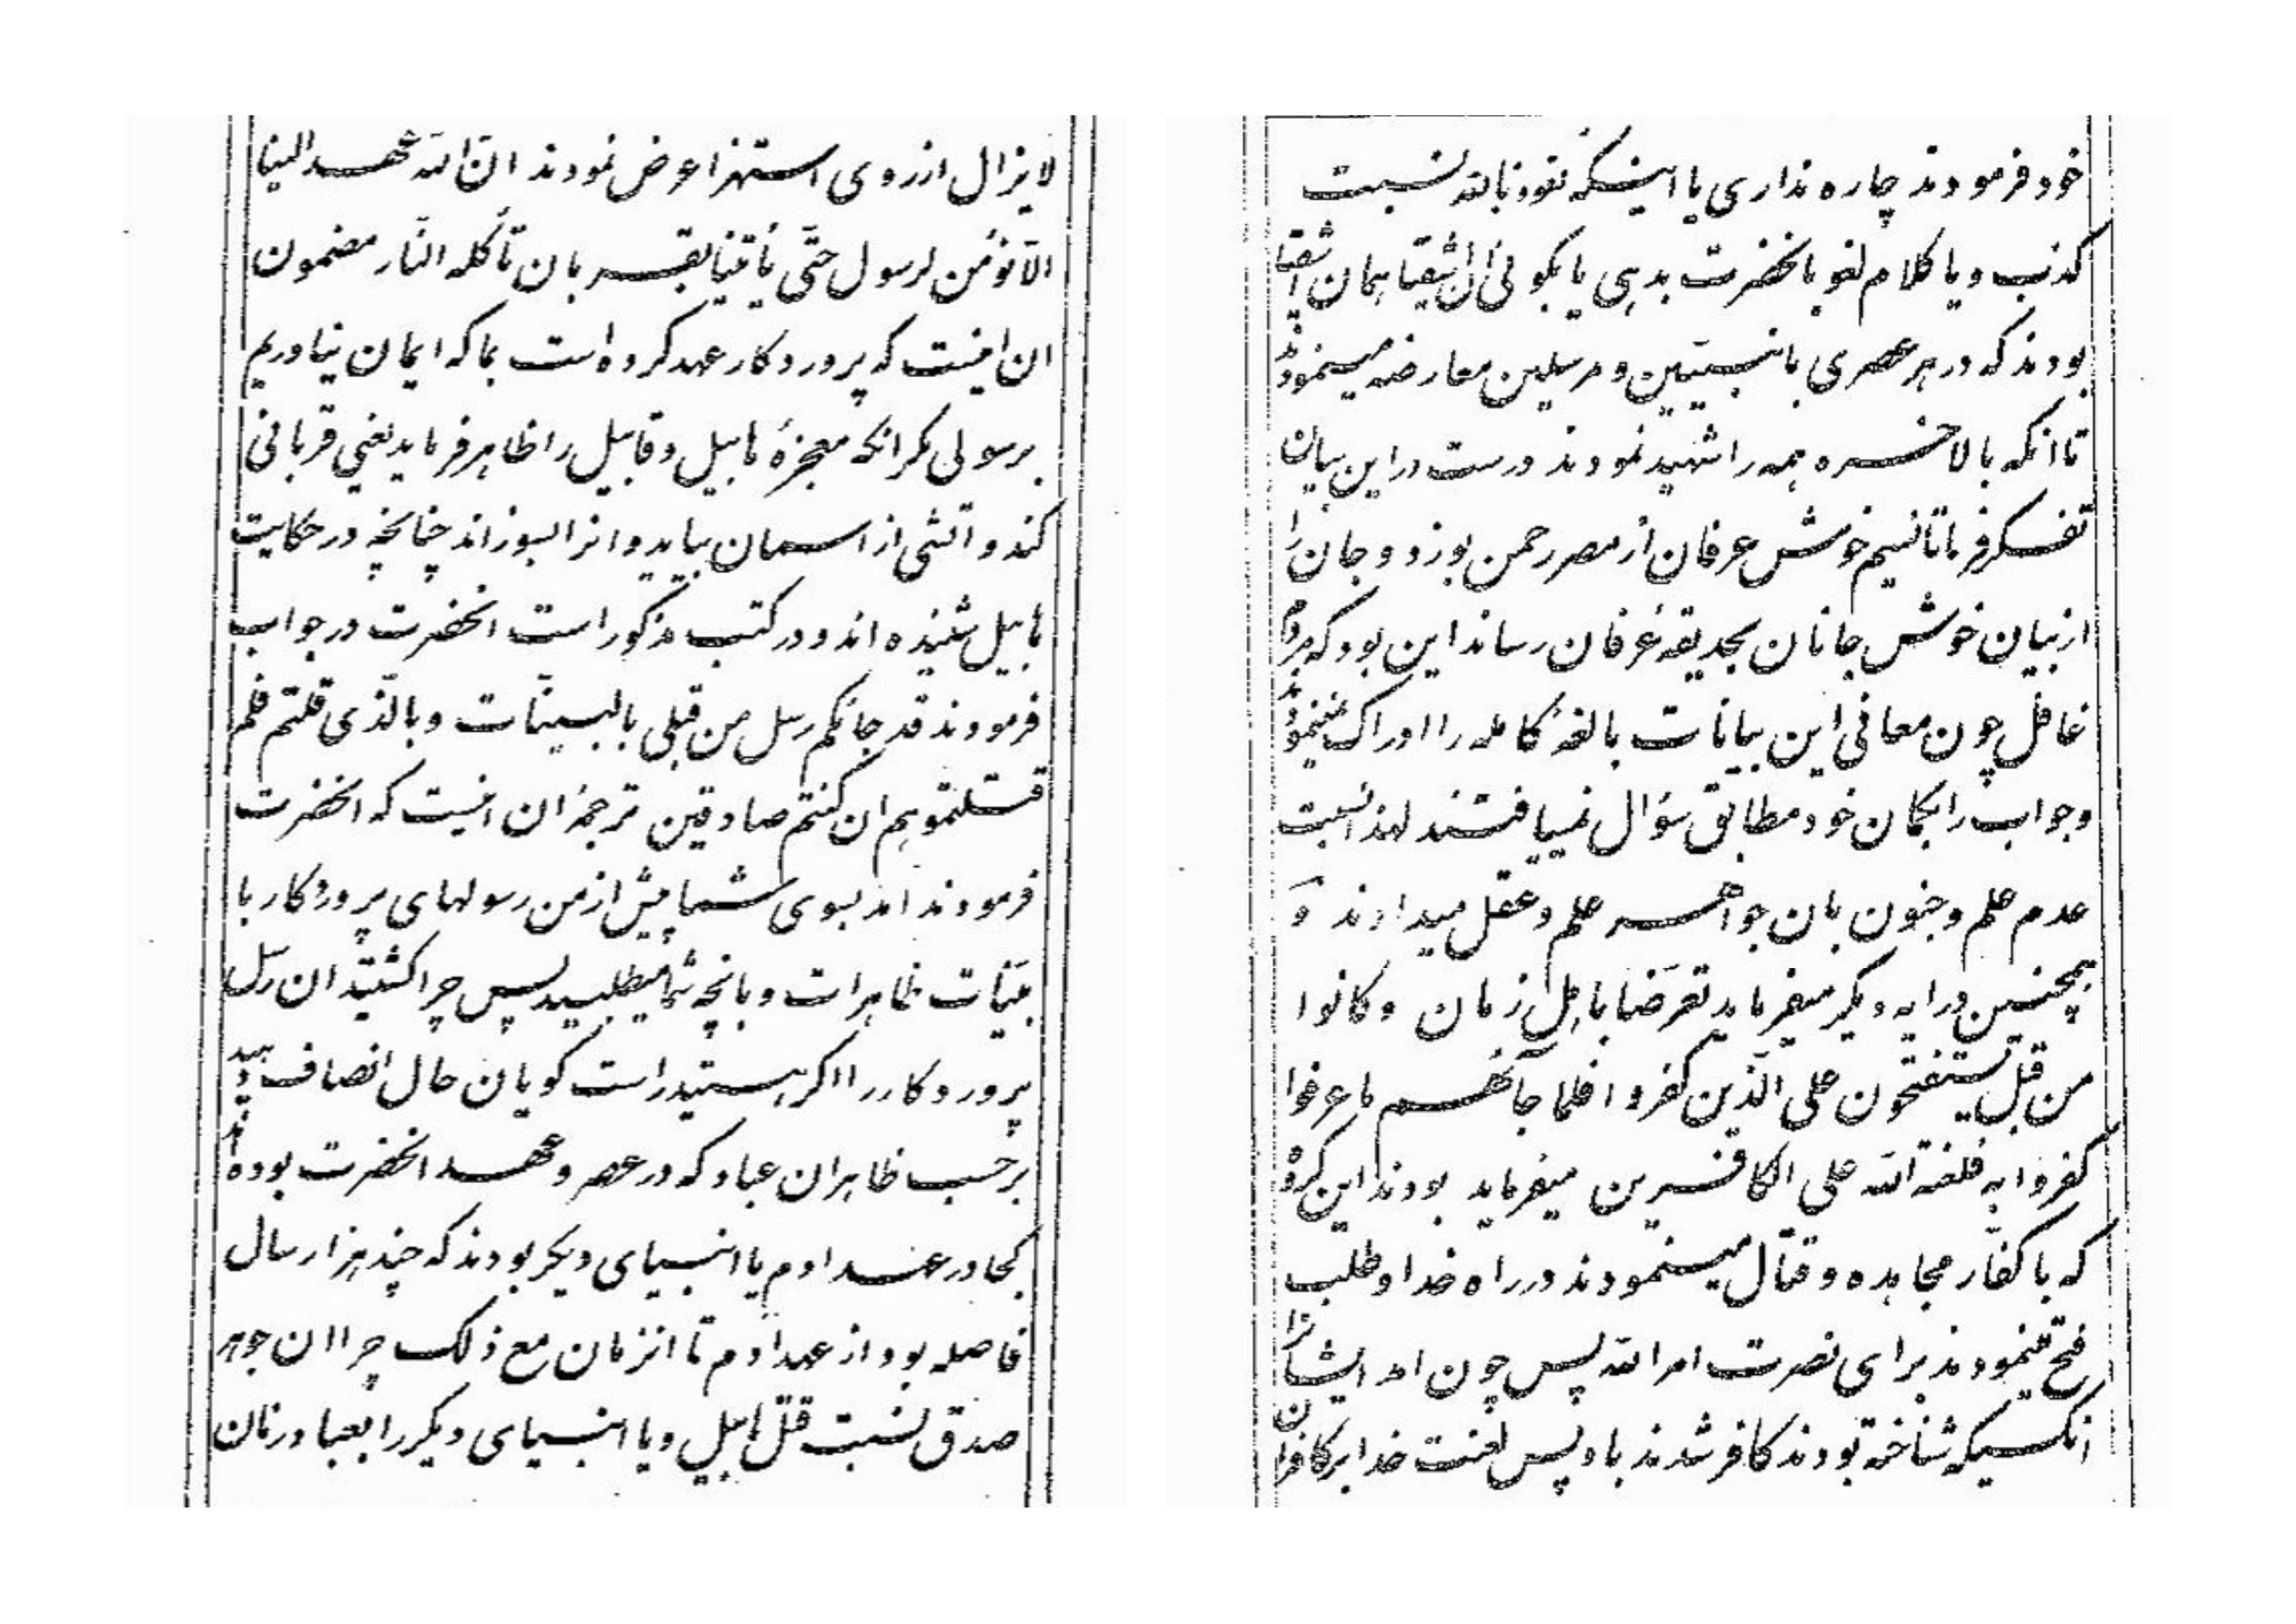 لا يزال از روی استهزا عرض نمودند انّ الله عهد الينا
الّا نؤمن لرسول حتّی يأتينا بقربان تأکله النّار مضمون
ان اينست که پروردکار عهد کرده است بما که ايمان نياوريم
برسولی مکر انکه معجزهٔ هابيل و قابيل را ظاهر فرمايد يعنی قربانی
کند و اتشی از اسمان بيايد و انرا بسوزاند چنانچه در حکايت
هابيل شنيده اند و در کتب مذکور است انحضرت در جواب
فرمودند قد جائکم رسل من قبلی بالبيّنات و بالّذی قلتم فلم
قتلتموهم ان کنتم صادقين ترجمهٔ ان اينست که انحضرت
فرمودند امد بسوی شما پيش از من رسولهای پروردکار با
بيّنات ظاهرات و بانچه شما ميطلبيد پس چرا کشتيد ان رسل
پروردکار را اکر هستيد راست کويان حال انصاف دهيد
برحسب ظاهر ان عباد که در عصر و عهد انحضرت بوده اند
کجا در عهد ادم يا انبيای ديکر بودند که چند هزار سال
فاصله بود از عهد ادم تا انزمان مع ذلک چرا ان جوهر
صدق نسبت قتل هابيل و يا انبيای ديکر را بعباد زمان
خود فرمودند چاره نداری يا اينکه نعوذ بالله نسبت
کذب و يا کلام لغو بانحضرت بدهی يا بکوئی ان اشقيا همان اشقيا
بودند که در هر عصری با نبيّين و مرسلين معارضه مينمودند
تا انکه بالاخره همه را شهيد نمودند درست در اين بيان
تفکر فرما تا نسيم خوش عرفان از مصر رحمن بوزد و جان را
از بيان خوش جانان بحديقهٔ عرفان رساند اين بود که مردم
غافل چون معانی اين بيانات بالغهٔ کامله را ادراک نمينمودند
و جواب را بکمان خود مطابق سؤال نمييافتند لهذا نسبت
عدم علم و جنون بان جواهر علم و عقل ميدادند و
همچنين در ايه ديکر ميفرمايد تعرّضا باهل زمان و کانوا
من قبل يستفتحون علی الّذين کفروا فلمّا جآئهم ما عرفوا
کفروا به فلعنة الله علی الکافرين ميفرمايد بودند اين کروه
که با کفّار مجاهده و قتال مينمودند در راه خدا و طلب
فتح مينمودند برای نصرت امر الله پس چون امد ايشانرا
انکسيکه شناخته بودند کافر شدند باو پس لعنت خدا بر کافران